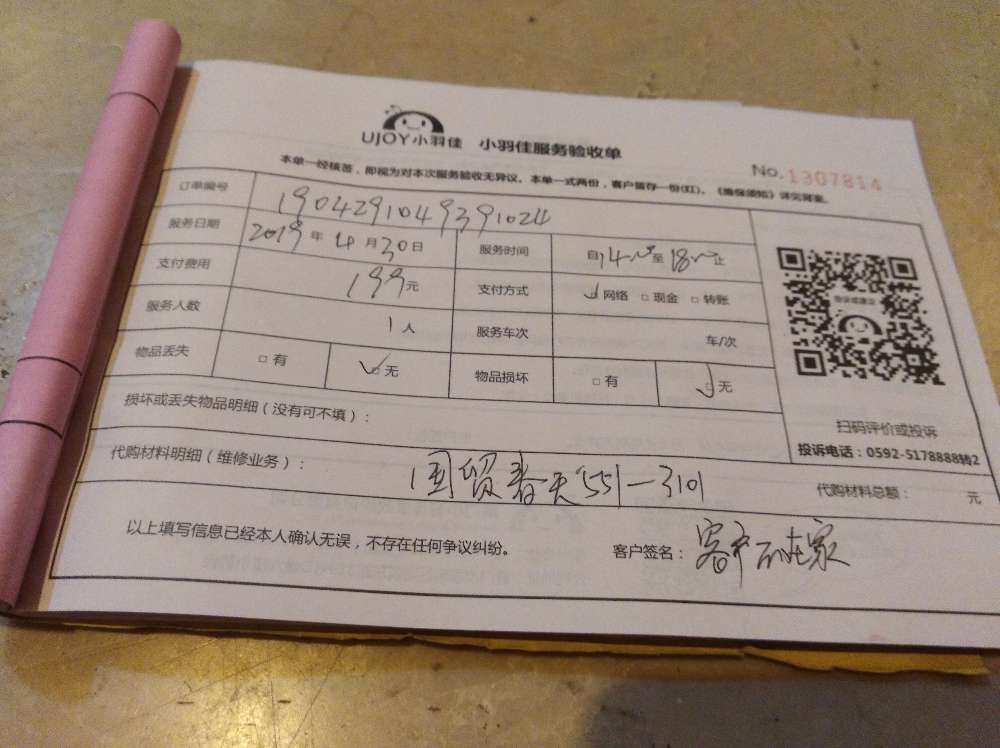 UJOY小羽佳 小羽佳服务验收单
No.1307814
本单一经核签，即视为对本次服务验收无异议。本单一式两份，客户留存一份(红)。《维保须知》详见背面。
订单编号 1904291049391024
服务日期 2019年4月30日 服务时间 自14:00至18:00止
支付费用 199元 支付方式 ☑网络 □现金 □转账
服务人数 1人 服务车次 车/次
物品丢失 □有 ☑无 物品损坏 □有 ☑无
扫码评价或投诉
投诉电话：0592-5178888转2
损坏或丢失物品明细（没有可不填）：
代购材料明细（维修业务）： 国贸春天551-3101 代购材料总额： 元
以上填写信息已经本人确认无误，不存在任何争议纠纷。 客户签名：客户不在家